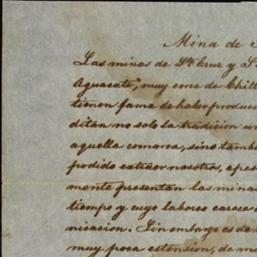 Mina de S
Las minas de Sta Cruz y S
Aguacate", muy cerca de Chill
tienen fama de haber produc
ditan no solo la tradicion un
aquella comarca, sino tamb
podido extraer nosotros, apes
mente presentan las mina
tiempo y cuyo labores carece
nisacion. Sin embargo es de
muy poca estension, de m